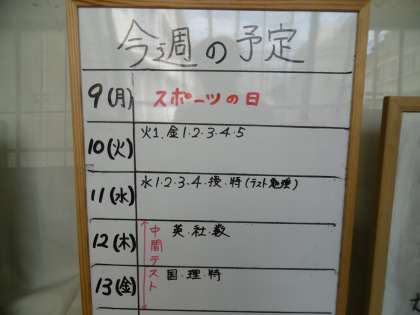 今週の予定
9(月) スポーツの日
10(火) 火1.金1・2・3・4・5
11(水) 水1・2・3・4・授・特(テスト勉強)
12(木) 英・社・数
13(金) 国・理・特
中間テスト